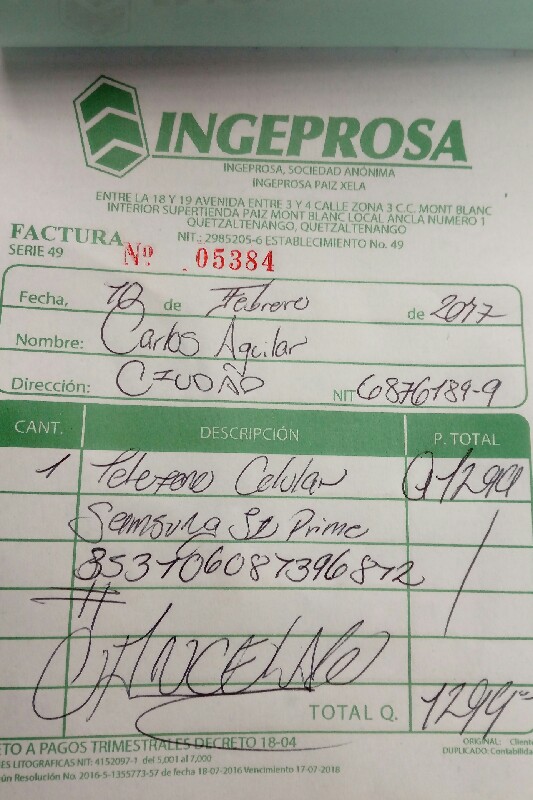 INGEPROSA
INGEPROSA, SOCIEDAD ANÓNIMA
INGEPROSA PAIZ XELA
ENTRE LA 18 Y 19 AVENIDA ENTRE 3 Y 4 CALLE ZONA 3 C.C. MONT BLANC
INTERIOR SUPERTIENDA PAIZ MONT BLANC LOCAL ANCLA NUMERO 1
QUETZALTENANGO, QUETZALTENANGO
NIT.: 2985205-6 ESTABLECIMIENTO No. 49
FACTURA
SERIE 49
Nº 05384
Fecha, de Febrero de 2017
Nombre: Carlos Aguilar
Dirección: CIUDAD NIT 6876189-9
CANT. DESCRIPCIÓN P. TOTAL
1 Telefono Celular Q1299
Samsung Prime
353706087396872
CANCELADO
TOTAL Q. 1299
ETO A PAGOS TRIMESTRALES DECRETO 18-04
ES LITOGRAFICAS NIT: 4152097-1 del 5,001 al 7,000
ún Resolución No. 2016-5-1355773-57 de fecha 18-07-2016 Vencimiento 17-07-2018
ORIGINAL: Cliente
DUPLICADO: Contabilida